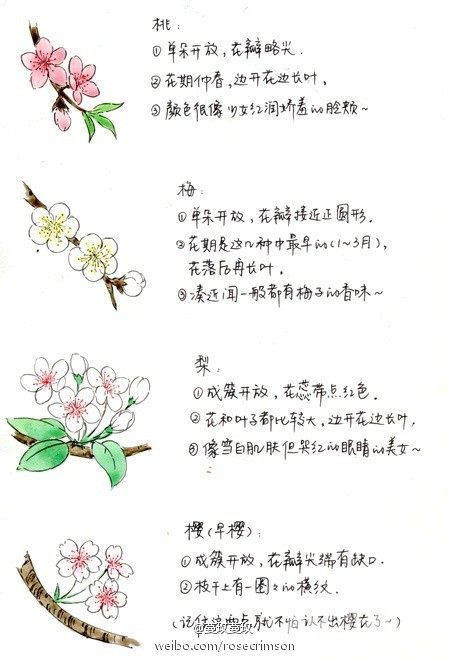 桃：
①单朵开放，花瓣略尖．
②花期仲春，边开花边长叶，
③颜色很像少女红润娇羞的脸颊~
梅：
①单朵开放，花瓣接近正圆形．
②花期是这几种中最早的(1~3月)，
花落后再长叶．
③凑近闻一般都有梅子的香味~
梨：
①成簇开放，花蕊带点红色．
②花和叶子都比较大，边开花边长叶，
③像雪白肌肤但哭红的眼睛的美女~
樱(早樱)：
①成簇开放，花瓣尖端有缺口．
②枝干上有一圈々的横纹．
(记住这两点就不怕认不出樱花了~)
@蔓玫蔓玫
weibo.com/rosecrimson